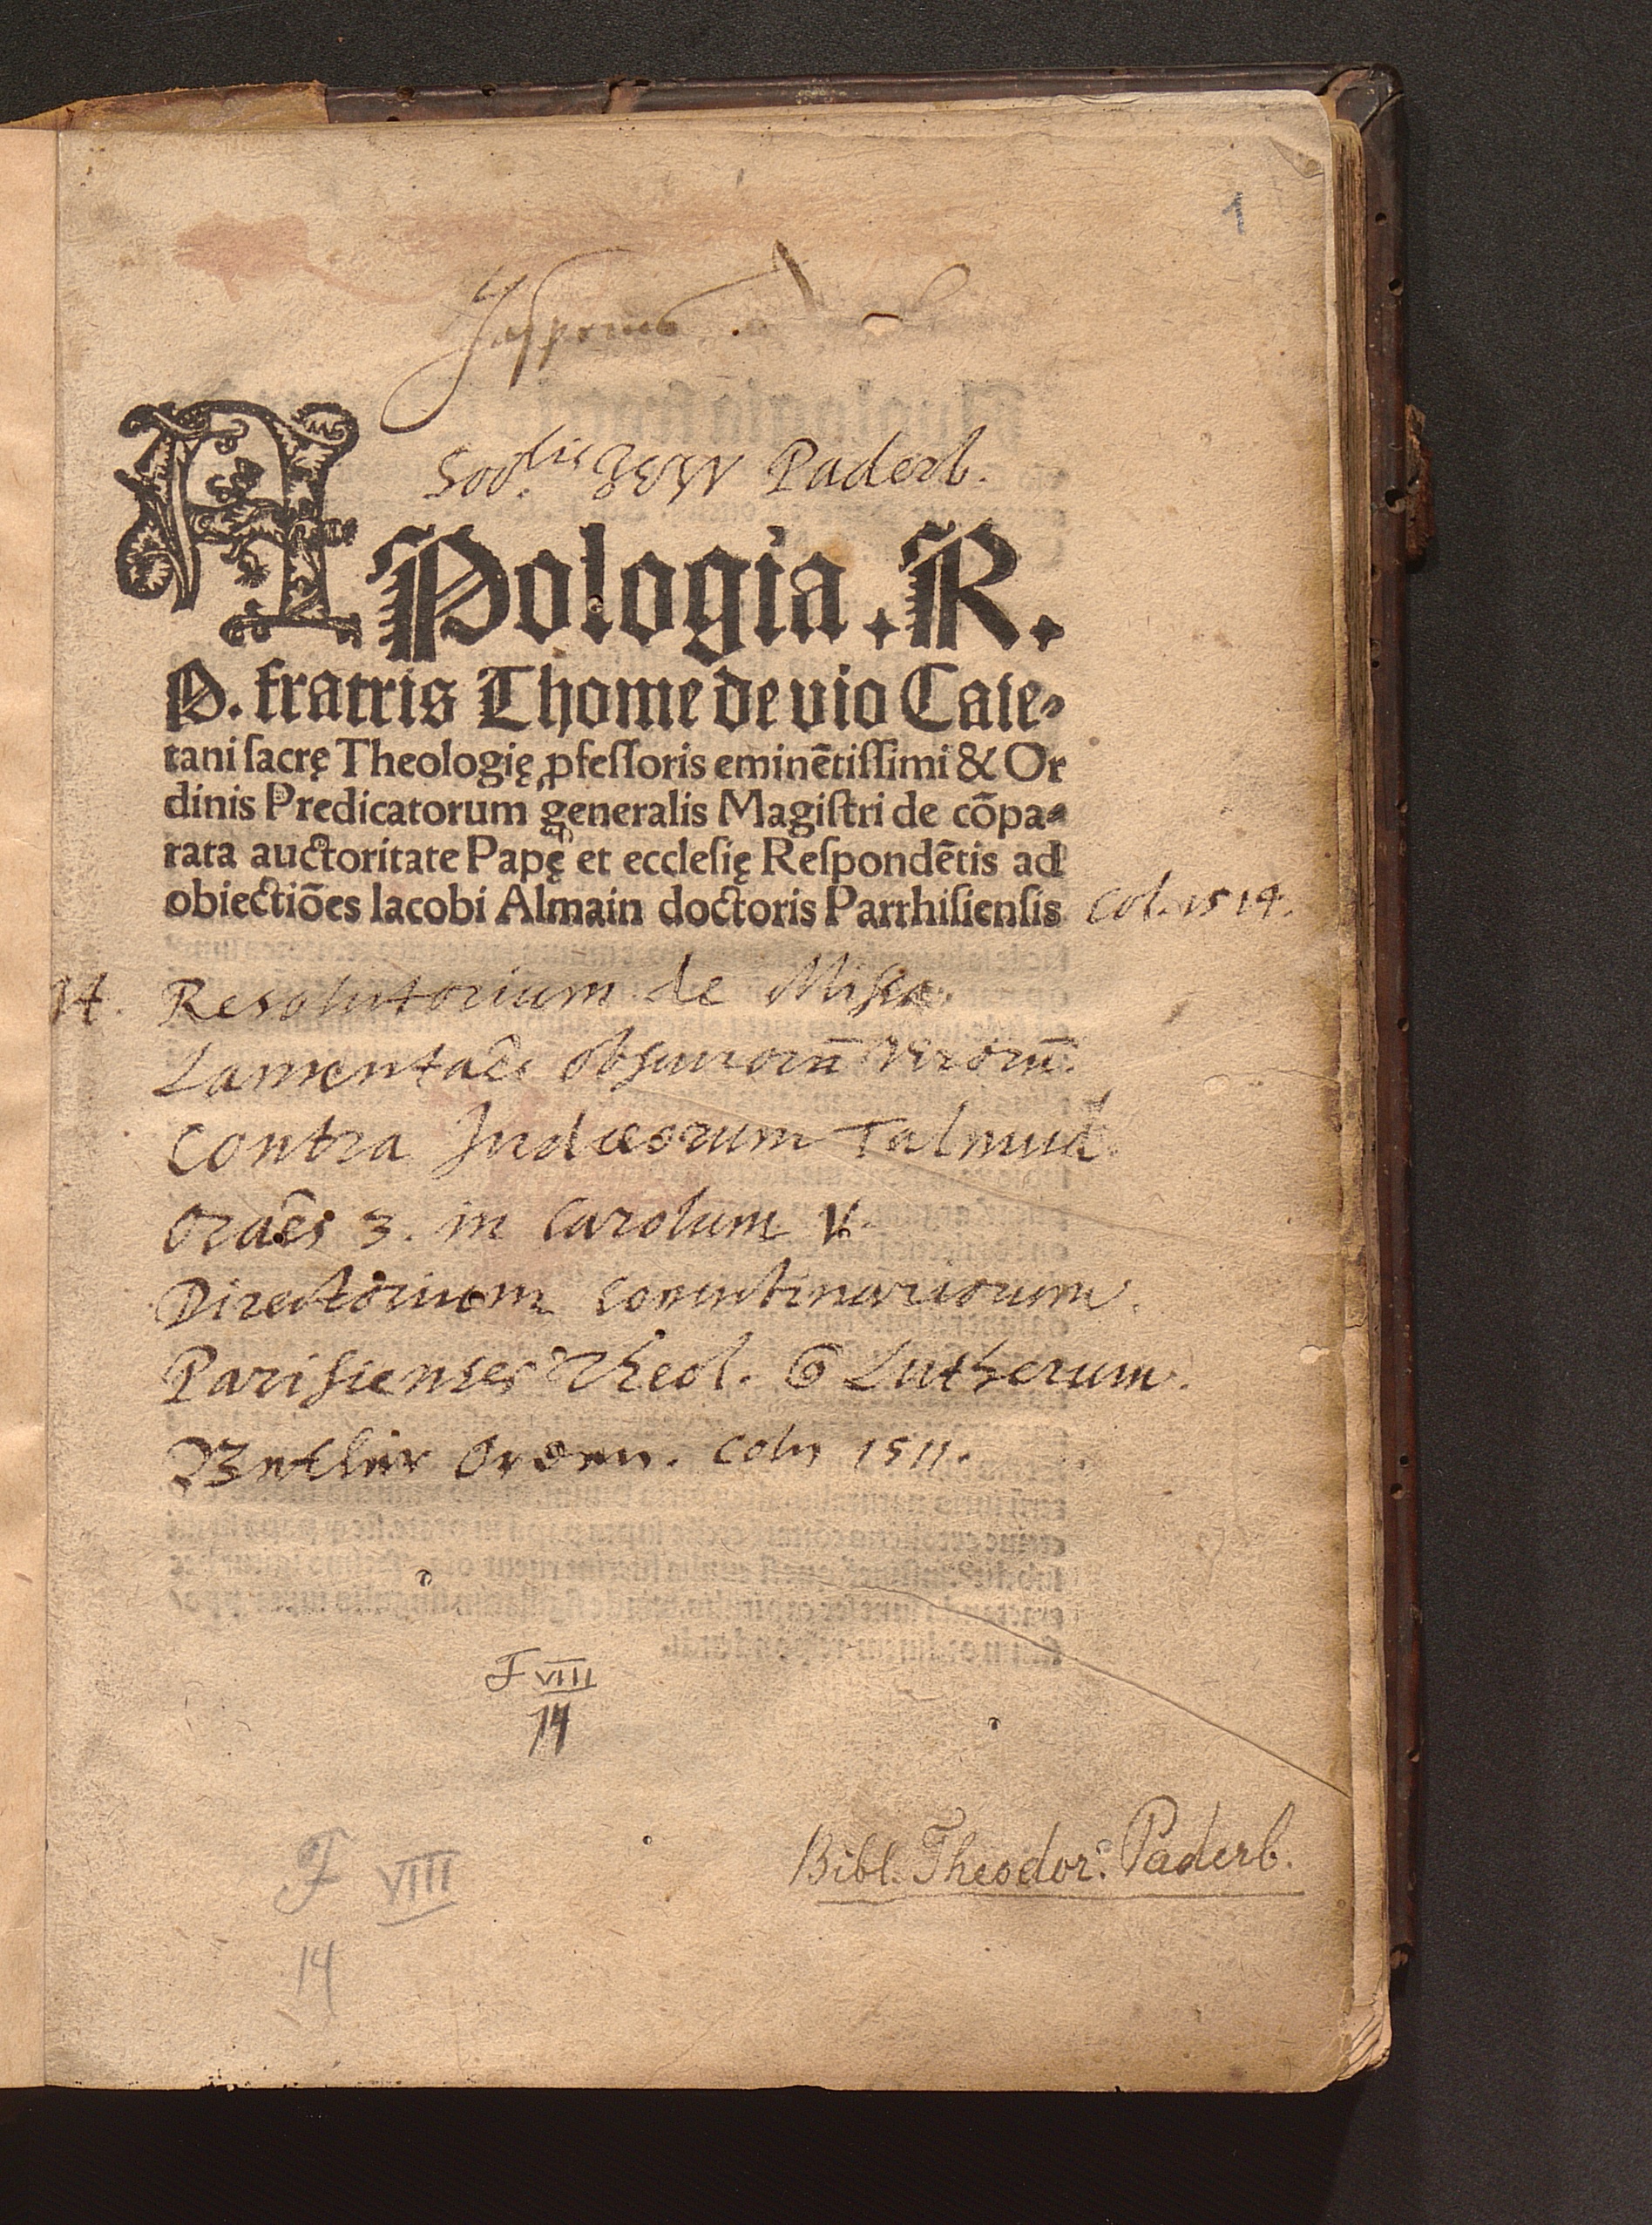 1
Soctis Jesu Paderb.
APologia. R.
P. fratris Thome de vio Caie-
tani sacrę Theologię ꝓfessoris eminētissimi & Or
dinis Predicatorum generalis Magistri de cōpa-
rata auctoritate Papę et ecclesię Respondētis ad
obiectiōes Iacobi Almain doctoris Parrhisiensis Col. 1514.
14. Resolutorium de Missa.
Lamentaōēs obscurorū virorū.
Contra Judaeorum Talmud.
Oraōēs 3. in Carolum V.
Directorium concubinariorum.
Parisienses Theol. Lutherum.
Betler Orden. Coln 1511.
F VIII
14
Bibl. Theodor. Paderb.
F VIII
14